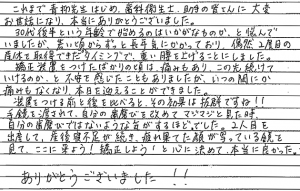 これまで青柳先生はじめ、歯科衛生士、助手の皆さんに大変
お世話になり、本当にありがとうございました。
30代後半という年齢で始めるのはいかがなものか、と悩んで
いましたが、若い頃からずっと長年気にかかっており、偶然2度目の
産休を取得できたタイミングで、重い腰を上げることにしました。
矯正装置をつけたばかりの頃は、痛みもあり、この先続けて
いけるのか、と不安に感じたこともありましたが、いつの間にか
痛みもなくなり、本日を迎えることができました。
装置をつける前と後を比べると、その効果は抜群ですね!!
手鏡を渡されて、自分の歯並びを改めてマジマジと見た時、
自分の歯並びではないような気がするほどでした。2人目を
出産して、産後寝不足が続き、疲れ果てた顔が写っている鏡を
見て、ここに来よう!矯正しよう!と心に決めて、本当に良かった。
ありがとうございました!!